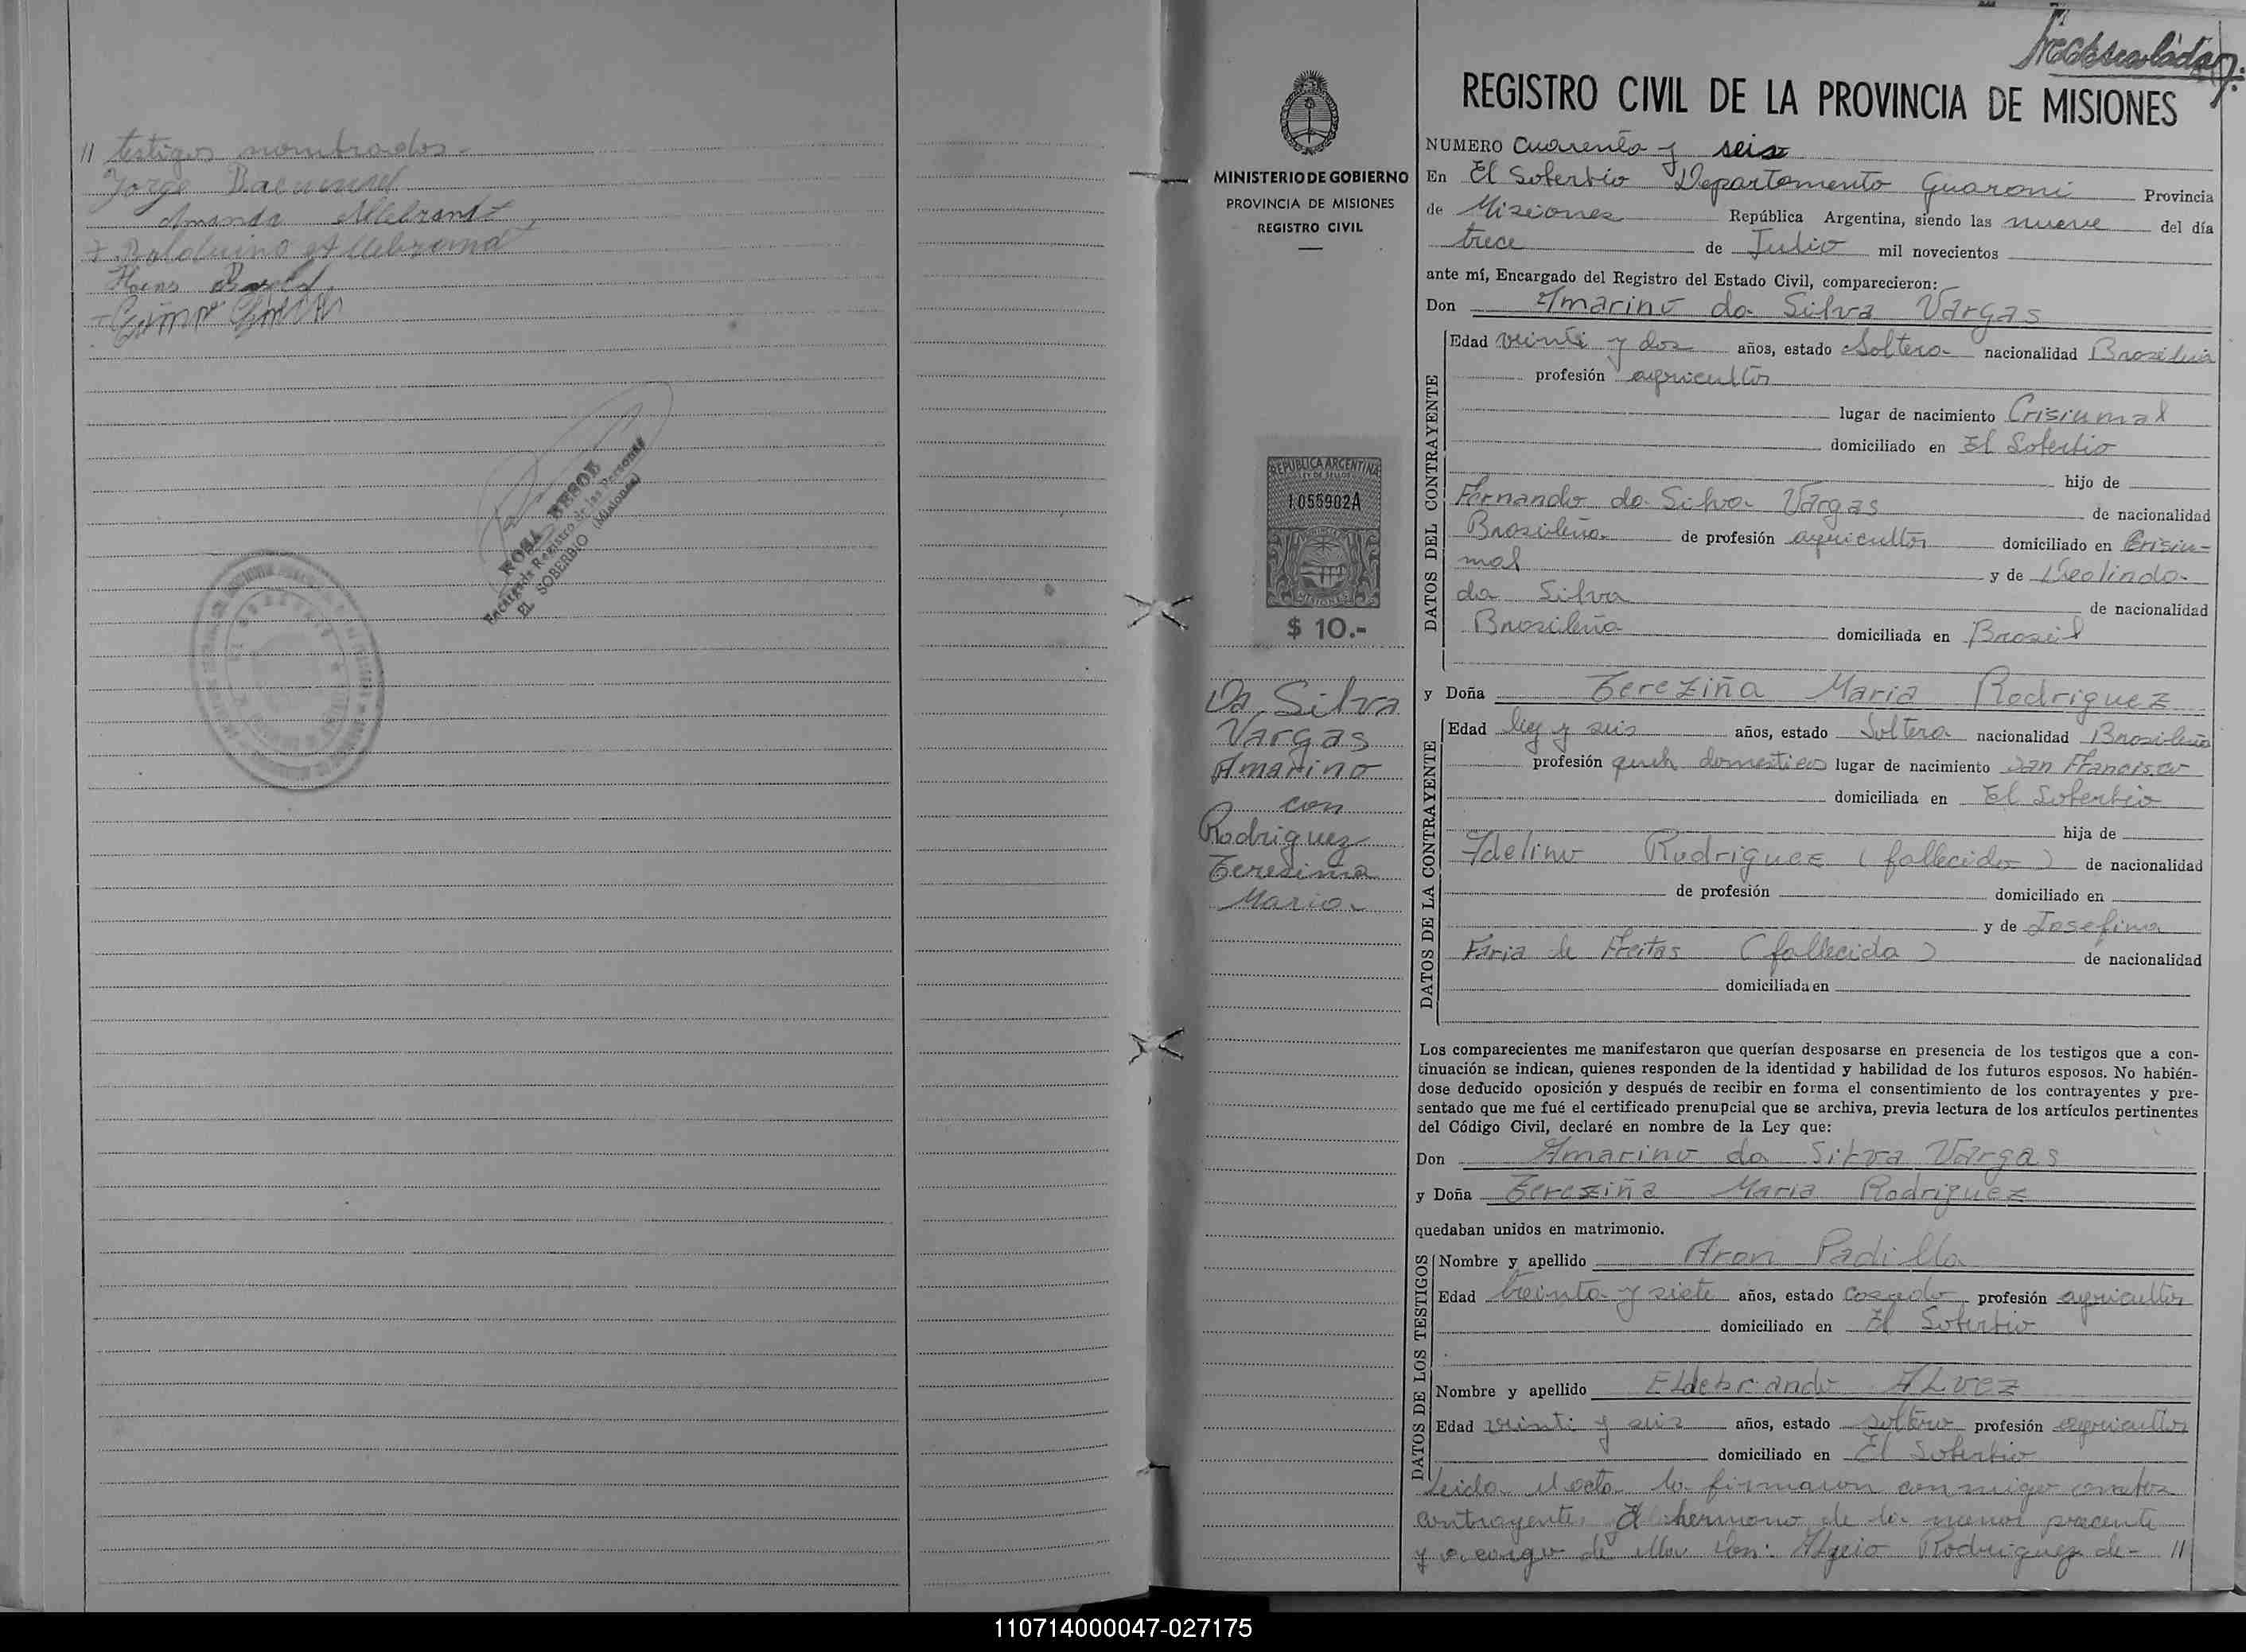 // testigos nombrados.-
Jorge
Amanda Allebrand
Balduino Allebrand
ROSA BERGOE
Encargada Registro de las Personas
EL SOBERBIO (Misiones)
MINISTERIO DE GOBIERNO
PROVINCIA DE MISIONES
REGISTRO CIVIL
REPUBLICA ARGENTINA
LEY DE SELLOS
1055902A
MISIONES
$ 10.-
Da Silva
Vargas
Amarino
con
Rodriguez
Teresinia
Maria.
REGISTRO CIVIL DE LA PROVINCIA DE MISIONES
NUMERO Cuarenta y seis
En El Soberbio Departamento Guaraní Provincia
de Misiones República Argentina, siendo las nueve del día
trece de Julio mil novecientos
ante mí, Encargado del Registro del Estado Civil, comparecieron:
Don Amarino da Silva Vargas
DATOS DEL CONTRAYENTE
Edad veinti y dos años, estado Soltero nacionalidad Brasileña
profesión agricultor
lugar de nacimiento Crisiumal
domiciliado en El Soberbio
hijo de
Fernando da Silva Vargas de nacionalidad
Brasileña de profesión agricultor domiciliado en Crisiu-
mal y de Deolinda
da Silva de nacionalidad
Brasileña domiciliada en Brasil
y Doña Tereziña Maria Rodriguez
DATOS DE LA CONTRAYENTE
Edad y seis años, estado Soltera nacionalidad Brasileña
profesión domesticos lugar de nacimiento San Francisco
domiciliada en El Soberbio
hija de
Adelino Rodriguez (fallecido) de nacionalidad
de profesión domiciliado en
y de Josefina
Faria de Freitas (fallecida) de nacionalidad
domiciliada en
Los comparecientes me manifestaron que querían desposarse en presencia de los testigos que a con-
tinuación se indican, quienes responden de la identidad y habilidad de los futuros esposos. No habién-
dose deducido oposición y después de recibir en forma el consentimiento de los contrayentes y pre-
sentado que me fué el certificado prenupcial que se archiva, previa lectura de los artículos pertinentes
del Código Civil, declaré en nombre de la Ley que:
Don Amarino da Silva Vargas
y Doña Tereziña Maria Rodriguez
quedaban unidos en matrimonio.
DATOS DE LOS TESTIGOS
Nombre y apellido Aron Padilla
Edad treinta y siete años, estado casado profesión agricultor
domiciliado en El Soberbio
Nombre y apellido Eldebrando Alvez
Edad veinti y seis años, estado soltero profesión agricultor
domiciliado en El Soberbio
Leida el acta la firmaron conmigo ambos
contrayente, El hermano de la menor precente
y a cargo de ella Don: Algeio Rodriguez de- //
110714000047-027175